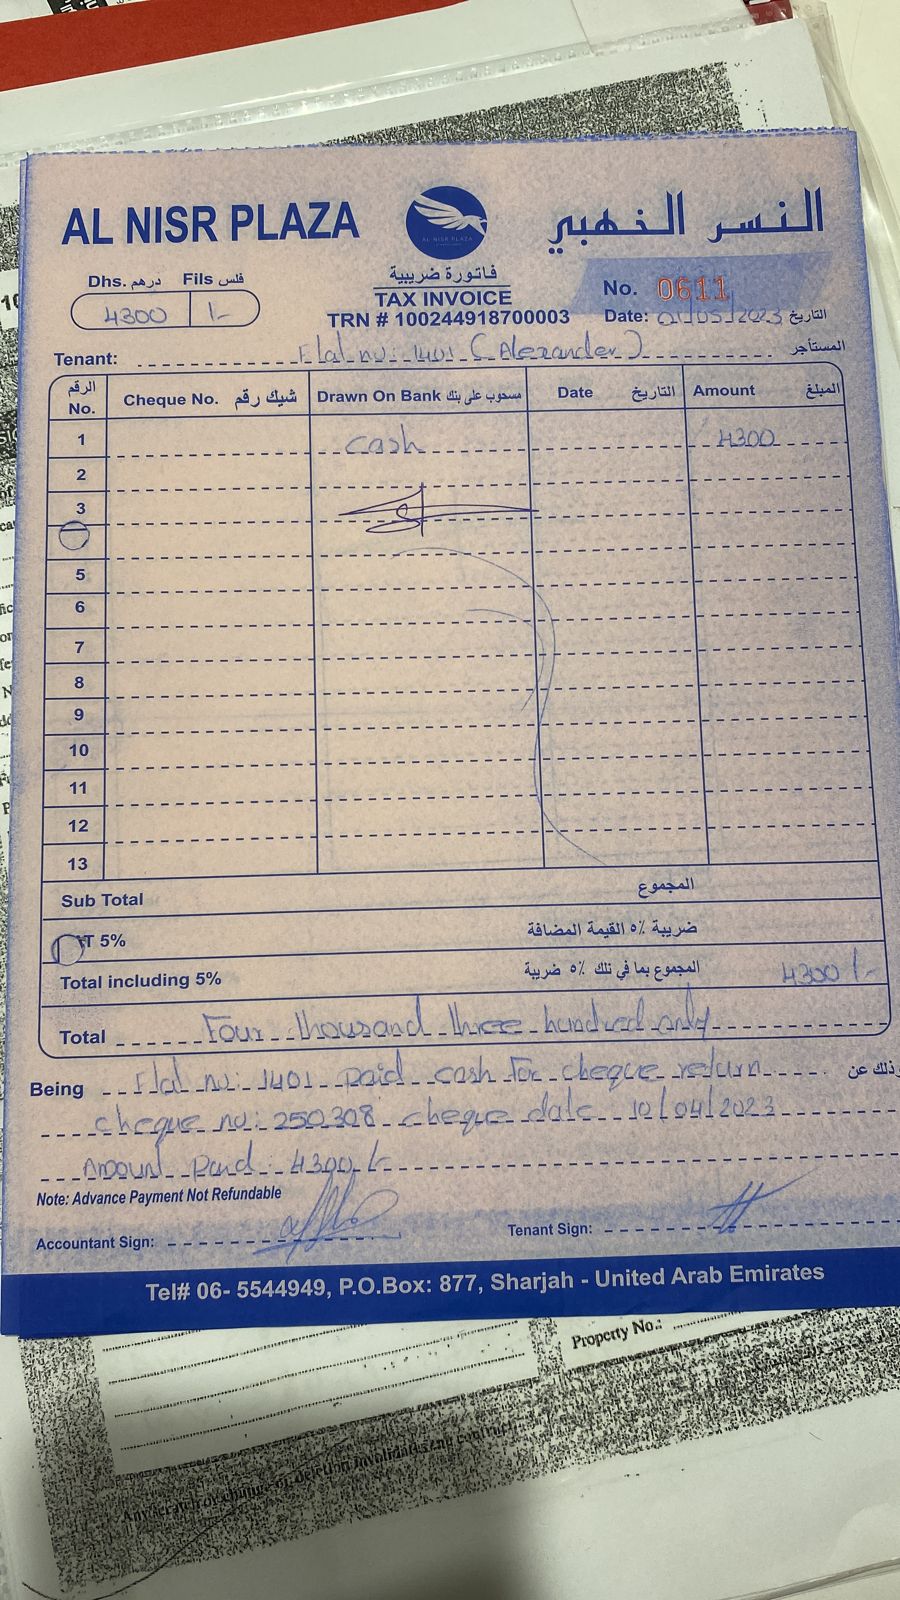 AL NISR PLAZA
AL NISR PLAZA
النسر الذهبي
Dhs. درهم Fils فلس
4300 /-
فاتورة ضريبية
TAX INVOICE
TRN # 100244918700003
No. 0611
Date: 01/05/2023 التاريخ
Tenant: Flat no: 1401 (Alexander) المستأجر
الرقم No. Cheque No. شيك رقم Drawn On Bank مسحوب على بنك Date التاريخ Amount المبلغ
1 Cash 4300
2
3
5
6
7
8
9
10
11
12
13
Sub Total المجموع
T 5% ضريبة ٥٪ القيمة المضافة
Total including 5% المجموع بما في ذلك ٥٪ ضريبة 4300/-
Total Four thousand three hundred only
Being Flat no: 1401 paid cash For cheque return وذلك عن
cheque no: 250308 cheque date 10/04/2023
Amount paid: 4300/-
Note: Advance Payment Not Refundable
Accountant Sign: Tenant Sign:
Tel# 06- 5544949, P.O.Box: 877, Sharjah - United Arab Emirates
Property No.: